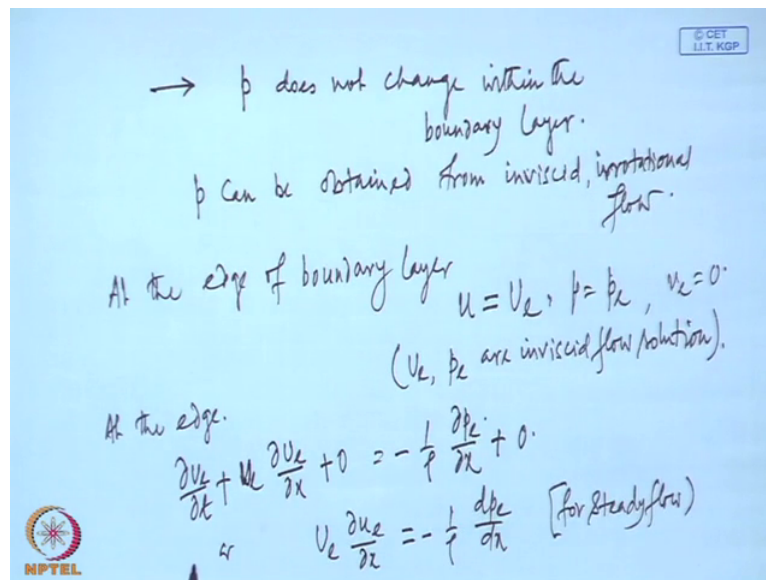 © CET
I.I.T. KGP
→ p does not change within the
boundary layer.
p can be obtained from inviscid, irrotational
flow.
At the edge of boundary layer
u = Ue, p = pe, ve = 0.
(Ue, pe are inviscid flow solution).
At the edge.
∂Ue/∂t + Ue ∂Ue/∂x + 0 = - 1/ρ ∂pe/∂x + 0.
or Ue ∂ue/∂x = - 1/ρ dpe/dx [for steady flow)
NPTEL